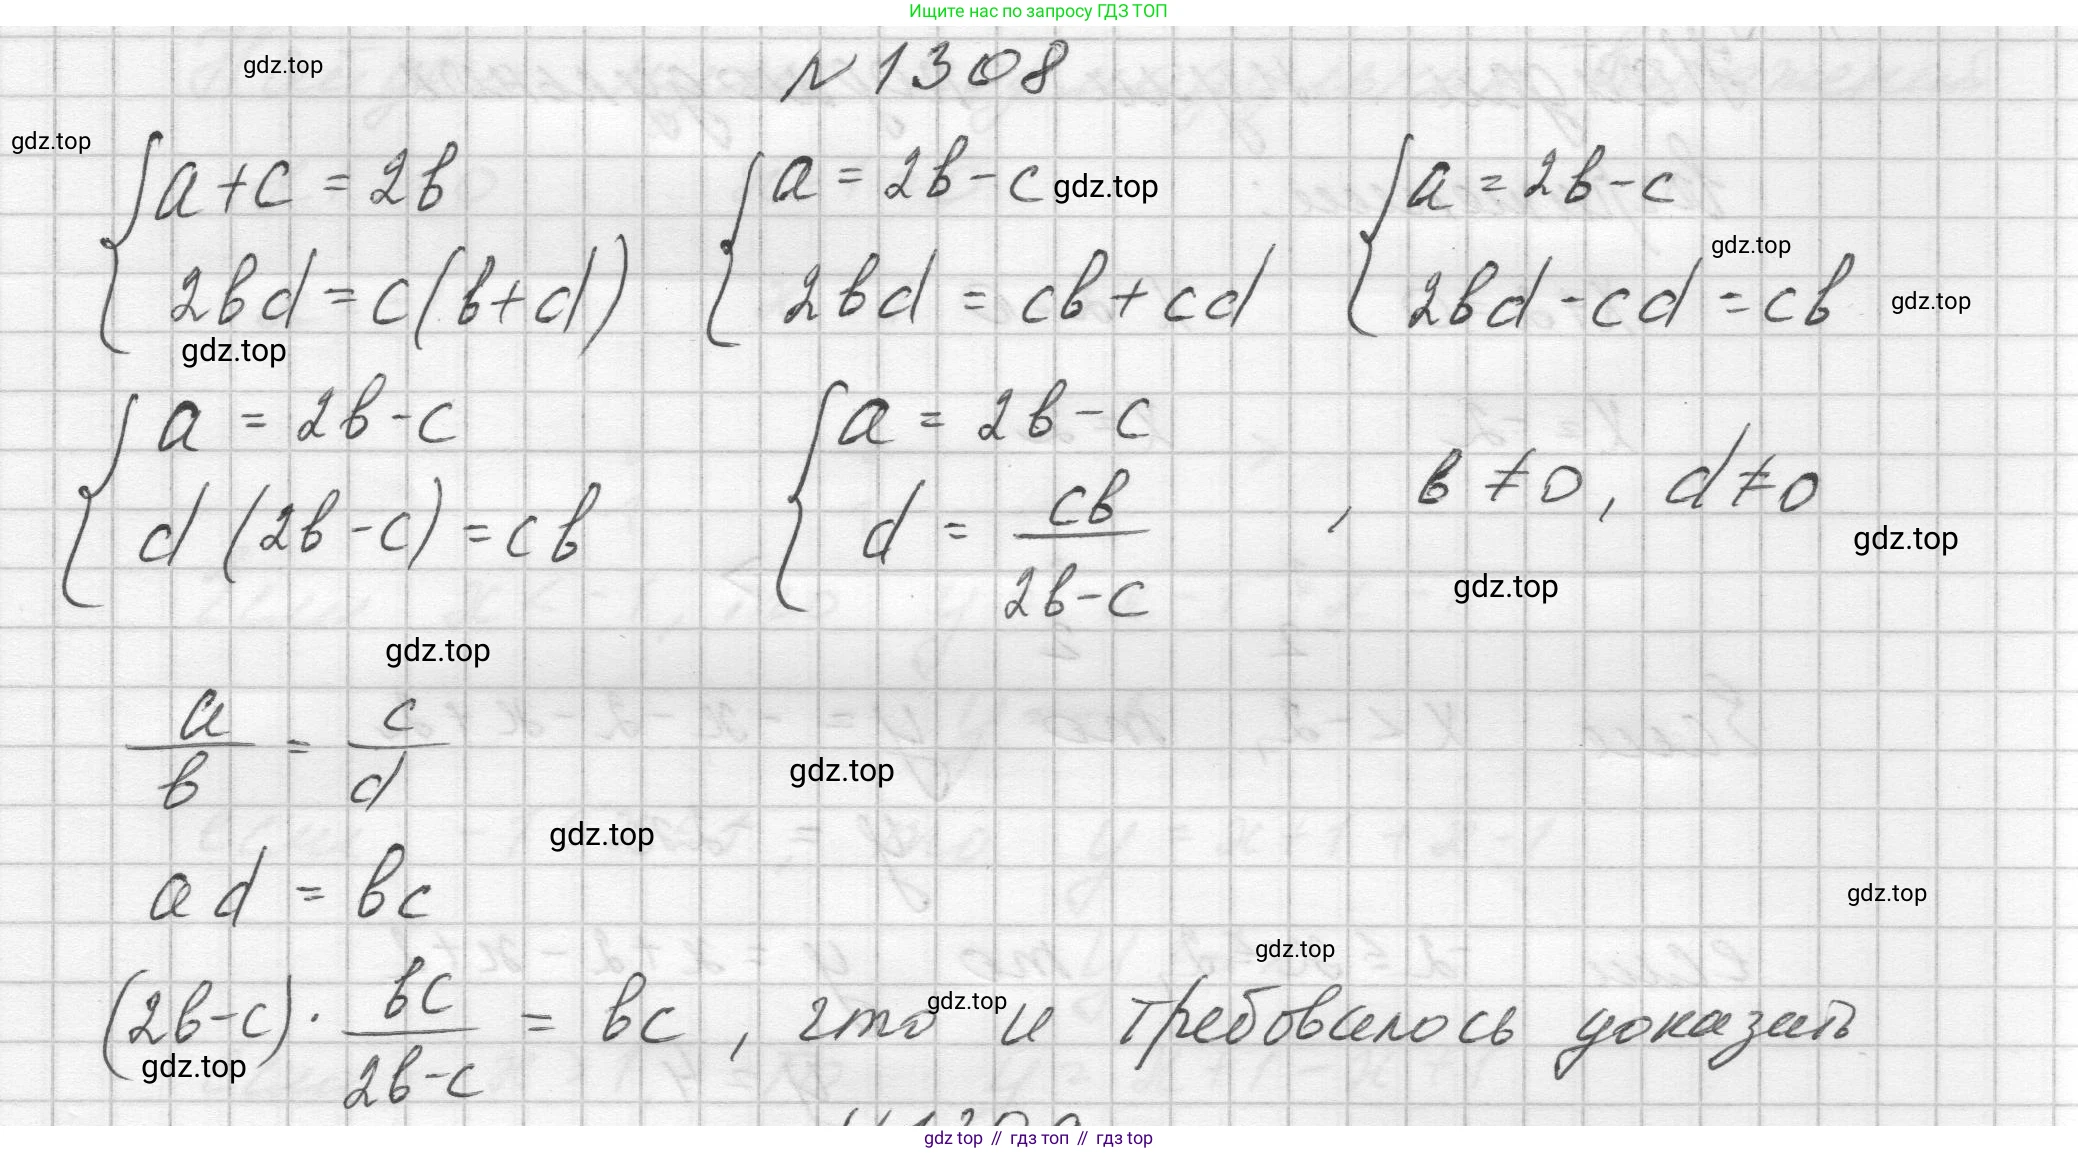 Ищите нас по запросу ГДЗ ТОП
gdz.top
№ 1308
gdz.top
{ a + c = 2b { a = 2b - c gdz.top { a = 2b - c
gdz.top
{ 2bd = c(b + d) { 2bd = cb + cd { 2bd - cd = cb gdz.top
gdz.top
{ a = 2b - c { a = 2b - c
{ d(2b - c) = cb { d = cb / (2b - c) , b ≠ 0, d ≠ 0
gdz.top
gdz.top
gdz.top
a/b = c/d
gdz.top
gdz.top
ad = bc
gdz.top
gdz.top
(2b - c) · bc / (2b - c) = bc, что gdz.top и требовалось доказать
gdz.top
gdz top // гдз топ // гдз top